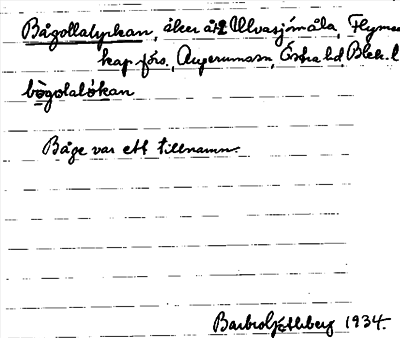 Bågollalyckan, åker åt Ulvasjömåla, Flymen
kap.förs., Augerumsn, Östra hd, Blek. l
bògolalókan
Båge var ett tillnamn.
1934.